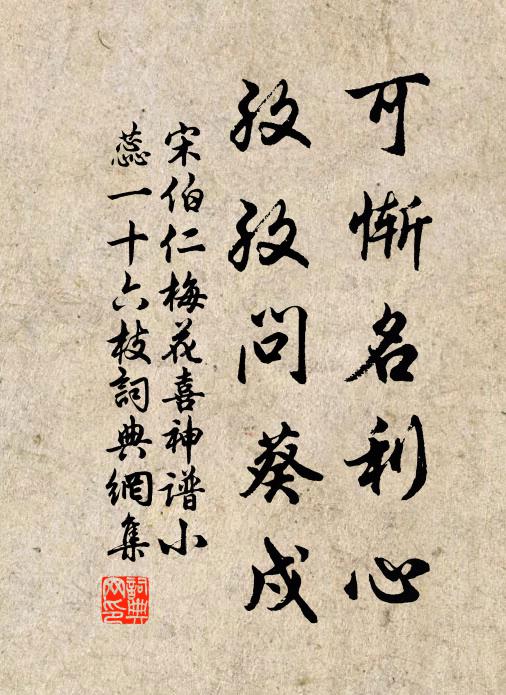 可惭名利心
孜孜問葵戍
宋伯仁梅花喜神谱小
蕊一十六枝詞典網集